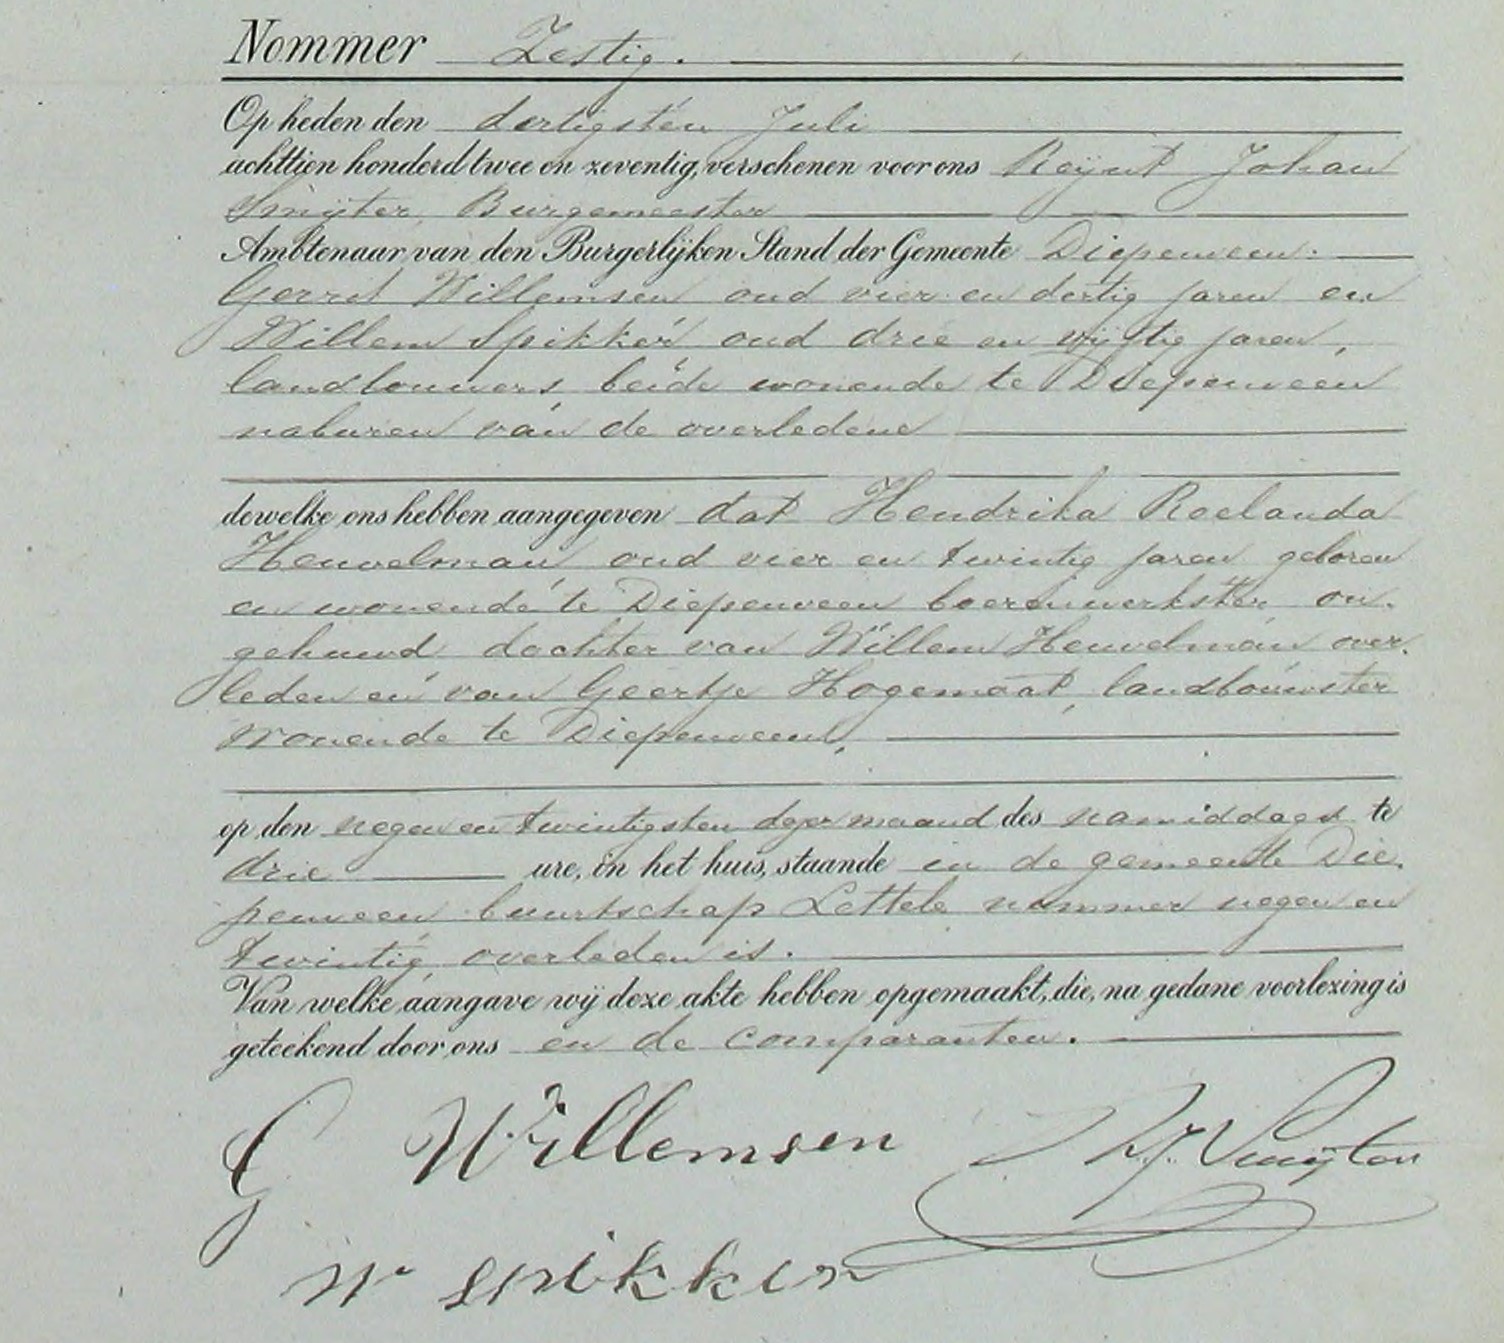 Nommer Zestig.
Op heden den dertigsten Juli
achttien honderd twee en zeventig, verschenen voor ons Reijnt Johan
Smijter, Burgemeester
Ambtenaar van den Burgerlijken Stand der Gemeente Diepenveen.
Gerrit Willemsen oud vier en dertig jaren en
Willem Spikker oud drie en vijftig jaren,
landbouwers beide wonende te Diepenveen
naburen van de overledene
dewelke ons hebben aangegeven dat Hendrika Roelanda
Heuvelman oud vier en twintig jaren geboren
en wonende te Diepenveen boerenwerkster on-
gehuwd dochter van Willem Heuvelman over-
leden en van Geertje Hogemaat, landbouwster
wonende te Diepenveen,
op den negen en twintigsten dezer maand des namiddags te
drie ure, in het huis, staande in de gemeente Die-
penveen buurtschap Lettele nummer negen en
twintig overleden is.
Van welke aangave wij deze akte hebben opgemaakt, die, na gedane voorlezing is
geteekend door ons en de comparanten.
G Willemsen R.J. Smijter
W Spikker